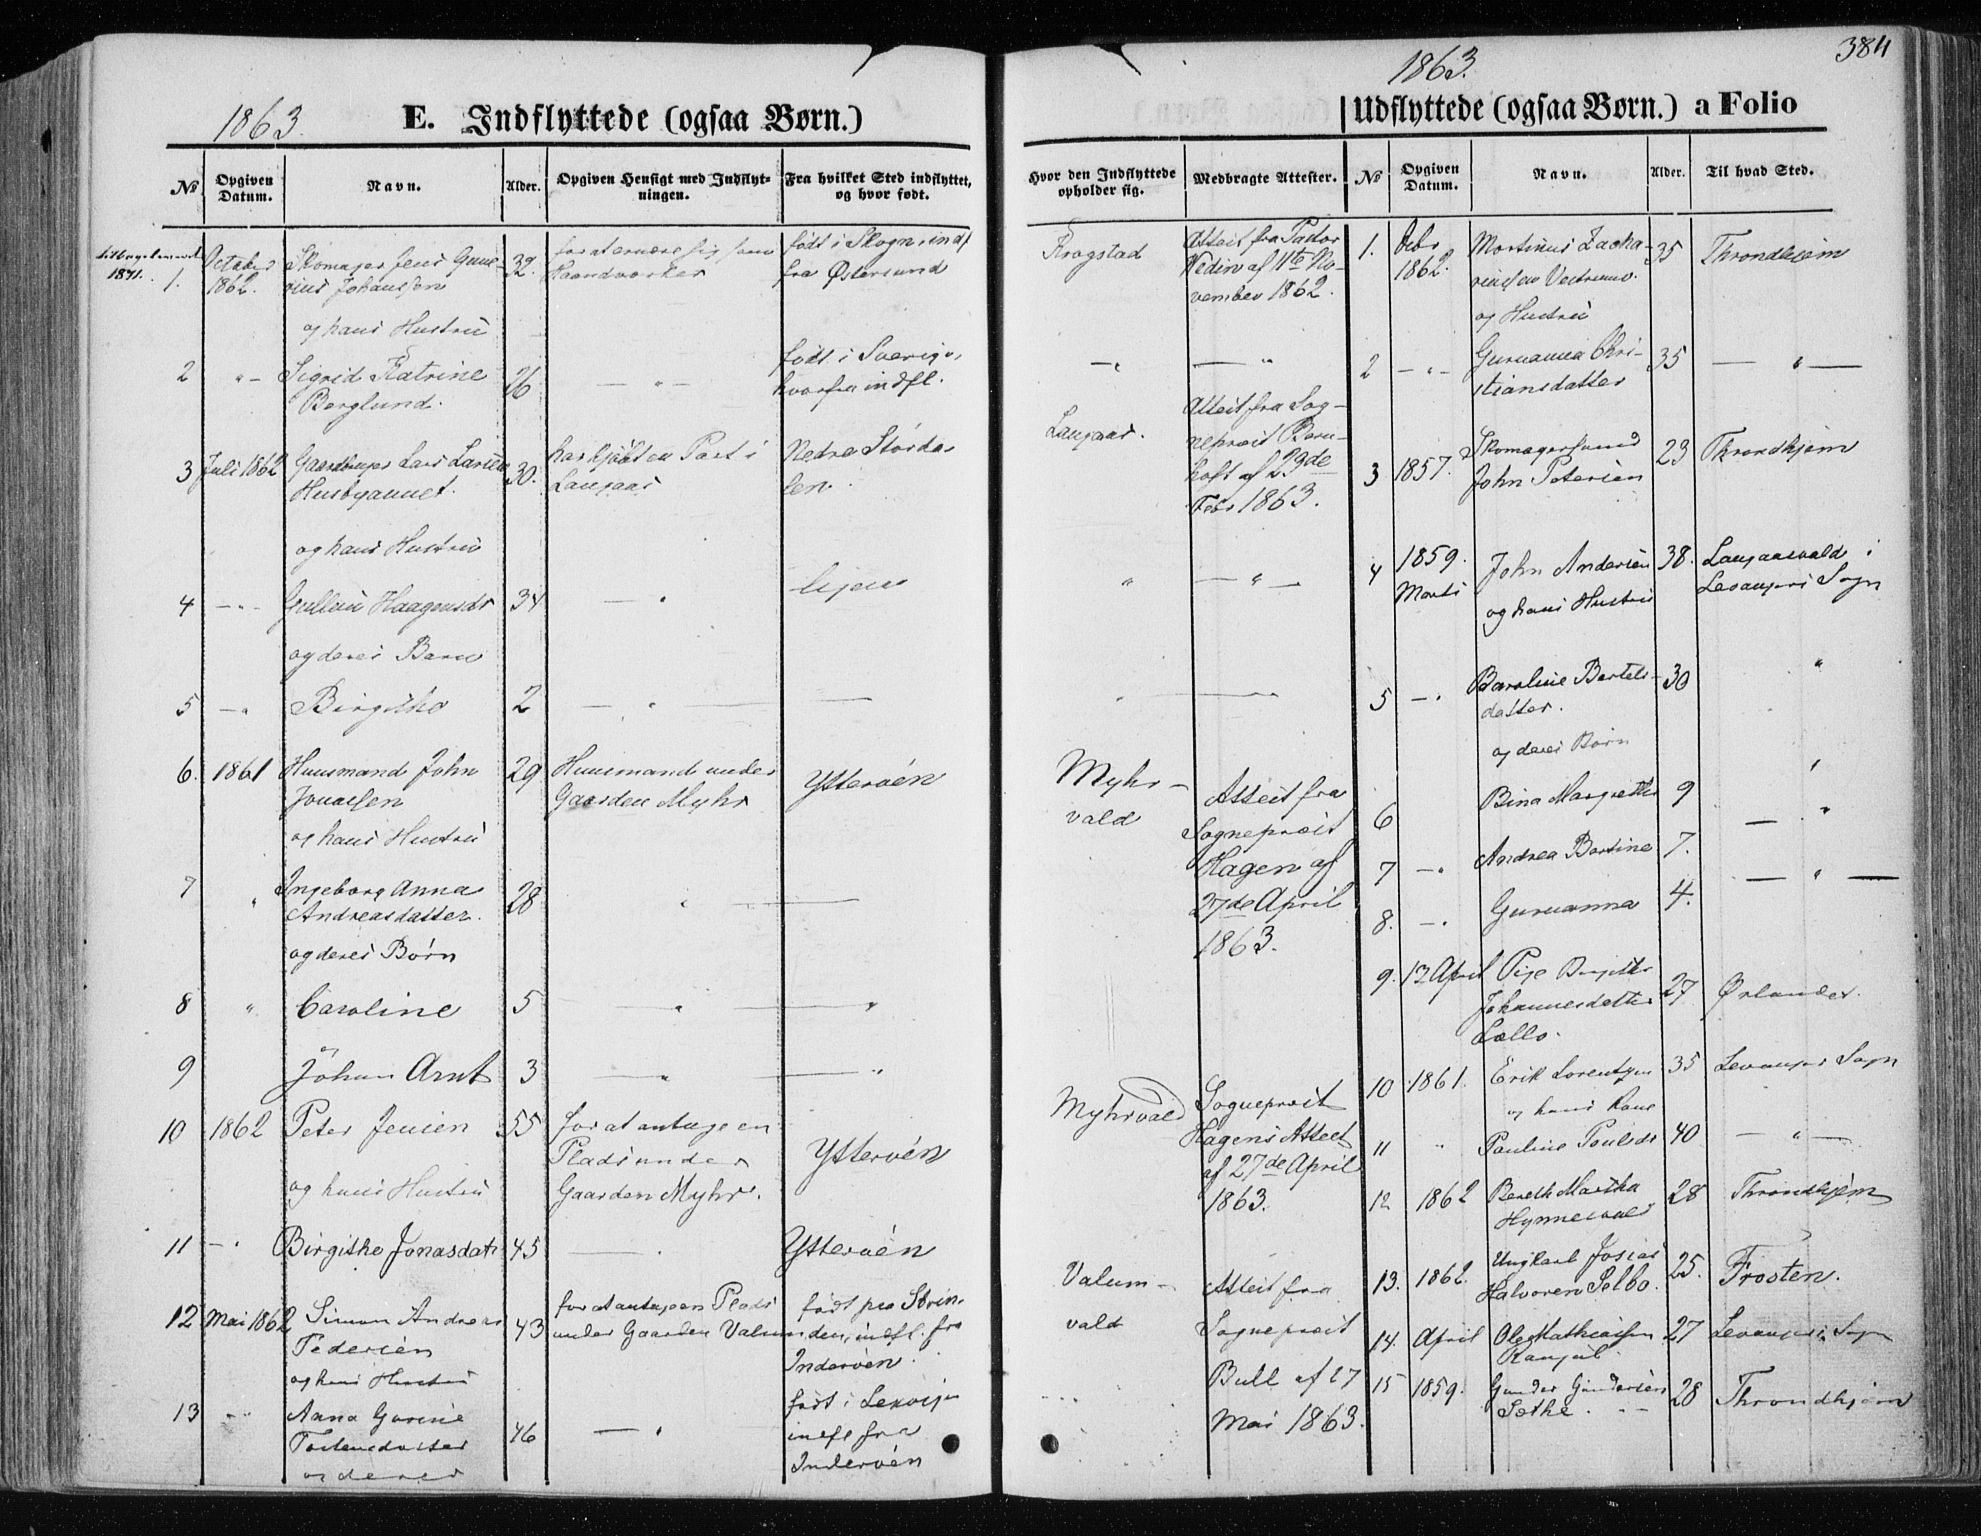 1863.
E. Indflyttede (ogsaa Børn.)
No
Opgiven Datum.
Navn.
Alder.
Opgiven Hensigt med Indflyt-
ningen.
Fra hvilket Sted indflyttet,
og hvor født.
1871.
1.
October
1862.
Skomager Jens Gune-
rius Johansen
32.
for at ernære sig som
Haandværker
født i Skogn, indf
fra Østersund
og hans Hustru
2
Sigrid Katrine
Berglund.
26
født i Sverige,
hvorfra indfl.
3
Juli 1862
Gaardbruger Lars Larsen
Husbyaunet.
30.
har kjøbt en Part i
Langaas
Nedre Størda-
len
og hans Hustru
4
Haagensdr
34
og deres Barn
5
Birgithe
2
6.
1861
Huusmand John
Jonassen
29
Huusmand under
Gaarden Myhr
Ytterøen
og hans Hustru
7
Ingeborg Anna
Andreasdatter.
28
og deres Børn
8
Caroline
5
9
Johan Arnt
3
10
1862
Peter Jensen
55
for at antage en
Plads under
Gaarden Myhr.
Ytterøen
og hans Hustru
11
Birgithe Jonasdatr
45
Ytterøen
12
Mai 1862
Simon Andreas
Pedersen
43
for at antage en Plads
under Gaarden Valum
født paa Strin-
den, indfl. fra
Inderøen.
og hans Hustru
13
Anna Gurine
Torstensdatter
46
født i Lexvigen
indfl fra
Inderøen
og deres
384
1863.
Udflyttede (ogsaa Børn.) a Folio
Hvor den Indflyttede
opholder sig.
Medbragte Attester.
No
Opgiven
Datum.
Navn.
Alder.
Til hvad Sted.
Krogstad
Attest fra Pastor
Vedin af 11te No-
vember 1862.
1.
Octbr
1862.
Martinus Zacha-
riassen
35
Throndhjem
og Hustru
2
Guruanna Chri-
stiansdatter
35
Langaas.
Attest fra Sog-
neprest Bern-
hoft af 29de
Febr 1863.
3
1857.
Skomagersvend
John Petersen
23
Throndhjem
4
1859.
Marts
John Andersen
og hans Hustru
38.
Langaasvald i
Levangers Sogn
5
Baroline Bertels-
datter.
30
og deres Børn
Myhr-
vald
Attest fra
Sogneprest
Hagen af
27de April
1863.
6
Bina Margrethe
9
7
Andrea Bortine
7.
8.
Guruanna
4.
9.
12 April
Pige Birgitte
Johannesdatter
27
Ørlandet.
10
1861.
Erik Lorentsen
35
Levangers Sogn
og hans Kone
Myhrvald
Sogneprest
Hagens Attest
af 27de April
1863.
11
Pauline Paulsdr
40
12
1862
Bereth Martha
Hynnesvald
28
Throndhjem
Valum-
vald
Attest fra
Sogneprest
Bull af 27
Mai 1863.
13.
1862.
Ungkarl Josias
Halvorsen Selbo.
25.
Frosten.
14.
April
Ole Mathiassen
27
Levangers Sogn
15
1859.
Gunder Gundersen
Sæthe.
28
Throndhjem